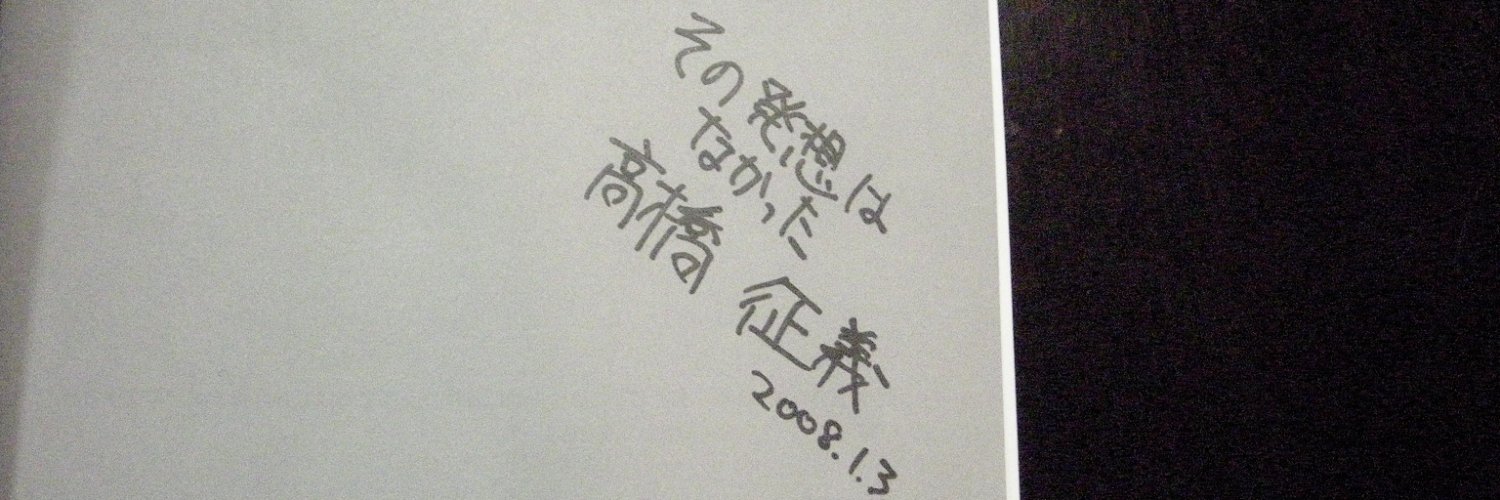 その発想は
なかった
高橋 征義
2008.1.3